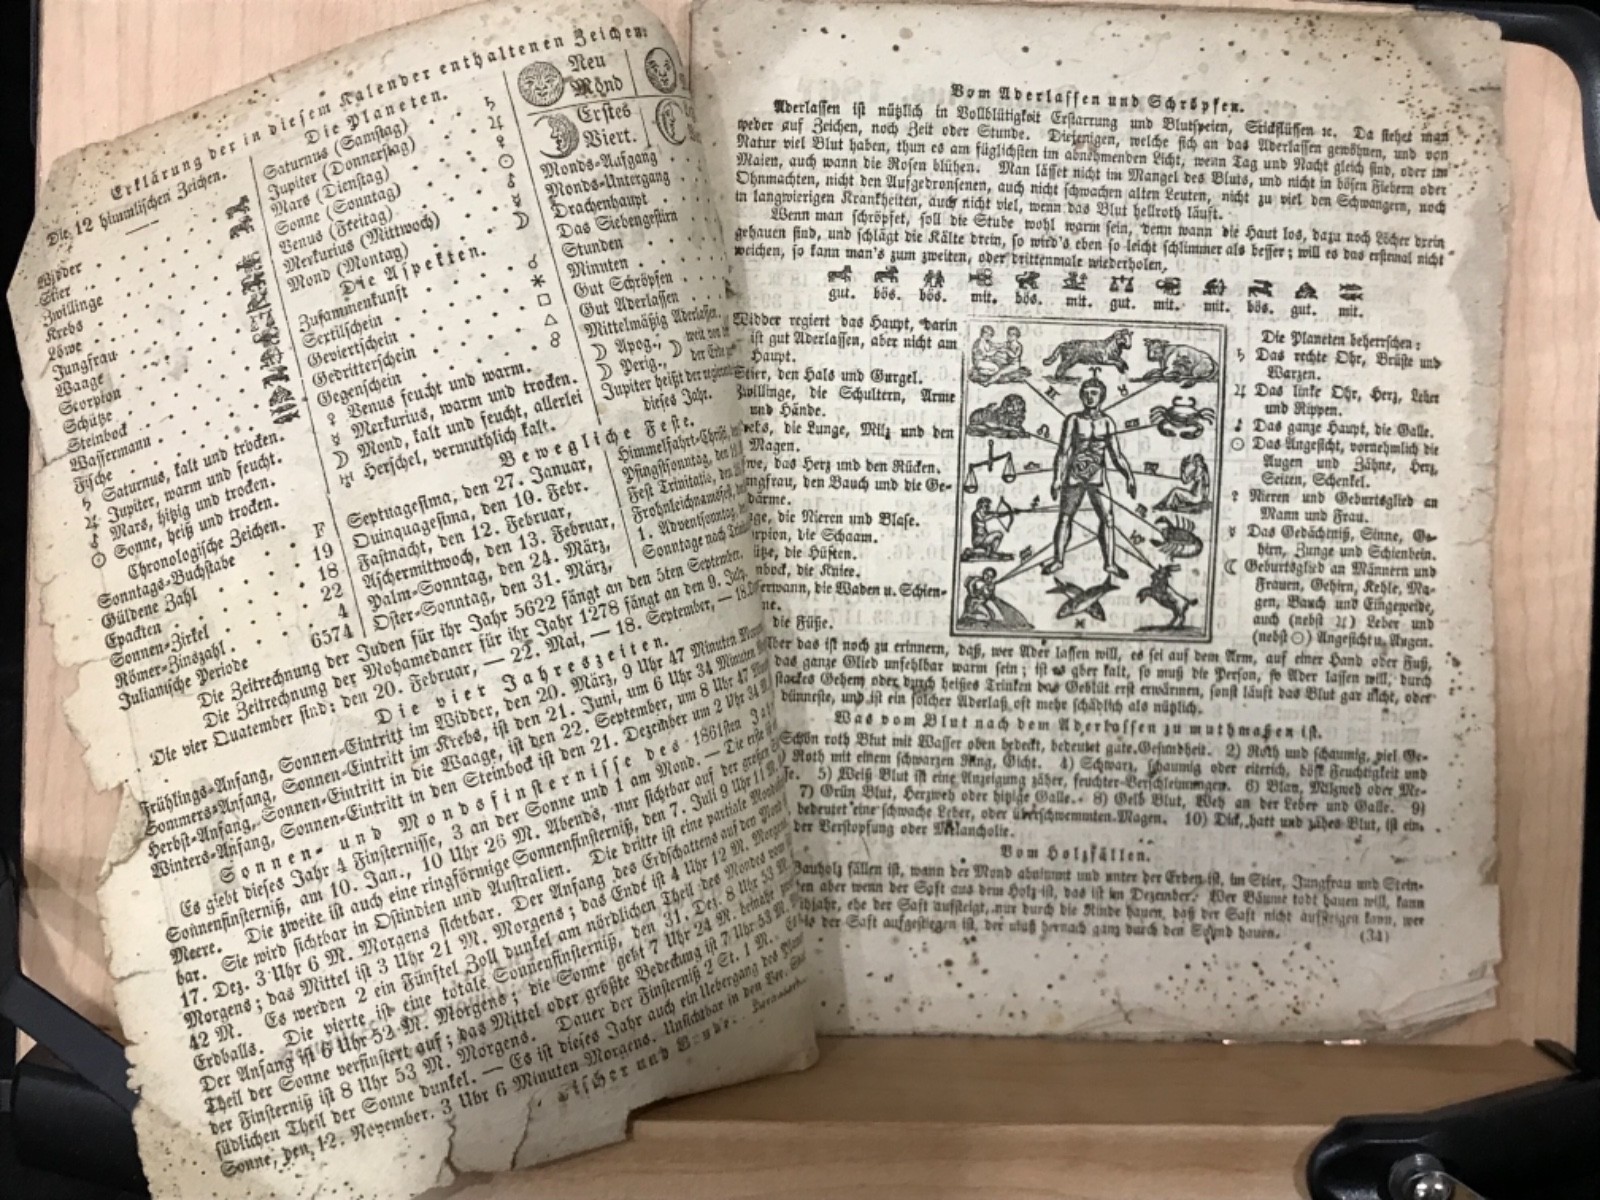 Erklärung der in diesem Kalender enthaltenen Zeichen:
Die 12 himmlischen Zeichen.
Widder
Stier
Zwillinge
Krebs
Löwe
Jungfrau
Waage
Scorpion
Schütze
Steinbock
Wassermann
Fische
♄ Saturnus, kalt und trocken.
♃ Jupiter, warm und feucht.
♂ Mars, hitzig und trocken.
☉ Sonne, heiß und trocken.
Chronologische Zeichen.
Sonntags-Buchstabe F
Güldene Zahl 19
Epackten 18
Sonnen-Zirkel 22
Römer-Zinszahl 4
Julianische Periode 6574
Die Planeten.
Saturnus (Samstag) ♄
Jupiter (Donnerstag) ♃
Mars (Dienstag)
Sonne (Sonntag) ☉
Venus (Freitag)
Merkurius (Mittwoch) ☿
Mond (Montag) ☽
Die Aspekten.
Zusammenkunft ☌
Sextilschein ✶
Geviertschein □
Gedritterschein △
Gegenschein ☍
♀ Venus feucht und warm.
☿ Merkurius, warm und trocken.
☽ Mond, kalt und feucht, allerlei
♅ Herschel, vermuthlich kalt.
Neu
Mond
Erstes
Viert.
Monds-Aufgang
Monds-Untergang
Drachenhaupt
Das Siebengestirn
Stunden
Minuten
Gut Schröpfen
Gut Aderlassen
Mittelmäßig Aderlassen
☽ Apog., ☽ weit von
☽ Perig., der Erde
Jupiter heißt der
dieses Jahr.
Bewegliche Feste.
Septuagesima, den 27. Januar,
Quinquagesima, den 10. Febr.
Fastnacht, den 12. Februar,
Aschermittwoch, den 13. Februar,
Palm-Sonntag, den 24. März,
Oster-Sonntag, den 31. März,
Himmelfahrt-Christi,
Pfingstsonntag, den
Fest Trinitatis, den
Frohnleichnamsfest,
1. Adventsonntag,
Sonntage nach
Die Zeitrechnung der Juden für ihr Jahr 5622 fängt an den 5ten September.
Die Zeitrechnung der Mohamedaner für ihr Jahr 1278 fängt an den 9. July.
Die vier Quatember sind: den 20. Februar, — 22. Mai, — 18. September, — 18.
Die vier Jahreszeiten.
Frühlings-Anfang, Sonnen-Eintritt im Widder, den 20. März, 9 Uhr 47 Minuten
Sommers-Anfang, Sonnen-Eintritt im Krebs, ist den 21. Juni, um 6 Uhr 34 Minuten
Herbst-Anfang, Sonnen-Eintritt in die Waage, ist den 22. September, um 8 Uhr 47
Winters-Anfang, Sonnen-Eintritt in den Steinbock ist den 21. Dezember um 2 Uhr 34
Sonnen- und Mondsfinsternisse des 1861sten
Es giebt dieses Jahr 4 Finsternisse, 3 an der Sonne und 1 am Mond. — Die erste
Sonnenfinsterniß, am 10. Jan., 10 Uhr 26 M. Abends, nur sichtbar auf der großen
Meere. Die zweite ist auch eine ringförmige Sonnenfinsterniß, den 7. Juli 9 Uhr 11
bar. Sie wird sichtbar in Ostindien und Australien. Die dritte ist eine partiale
17. Dez. 3 Uhr 6 M. Morgens sichtbar. Der Anfang des Erdschattens auf den Mond
Morgens; das Mittel ist 3 Uhr 21 M. Morgens; das Ende ist 4 Uhr 12 M.
42 M. Es werden 2 ein Fünftel Zoll dunkel am nördlichen Theil des Mondes vom
Erdballs. Die vierte ist eine totale Sonnenfinsterniß, den 31. Dez. 8 Uhr 53
Der Anfang ist 6 Uhr 52 M. Morgens; die Sonne geht 7 Uhr 24 M.
Theil der Sonne verfinstert auf; das Mittel oder größte Bedeckung ist 7 Uhr 53 M.
der Finsterniß ist 8 Uhr 53 M. Morgens. Dauer der Finsterniß 2 St. 1 M.
südlichen Theil der Sonne dunkel. — Es ist dieses Jahr auch ein Uebergang des
Sonne, den 12. November. 3 Uhr 6 Minuten Morgens. Unsichtbar in den Ver.
Vom Aderlassen und Schröpfen.
Aderlassen ist nützlich in Vollblütigkeit Erstarrung und Blutspeien, Stickflüssen ꝛc. Da siehet man
weder auf Zeichen, noch Zeit oder Stunde. Diejenigen, welche sich an das Aderlassen gewöhnen, und von
Natur viel Blut haben, thun es am füglichsten im abnehmenden Licht, wenn Tag und Nacht gleich sind, oder im
Maien, auch wann die Rosen blühen. Man lässet nicht im Mangel des Bluts, und nicht in bösen Fiebern oder
Ohnmachten, nicht den Aufgedronsenen, auch nicht schwachen alten Leuten, nicht zu viel den Schwangern, noch
in langwierigen Krankheiten, auch nicht viel, wenn das Blut hellroth läuft.
Wenn man schröpfet, soll die Stube wohl warm sein, denn wann die Haut los, dazu noch Löcher drein
gehauen sind, und schlägt die Kälte drein, so wird's eben so leicht schlimmer als besser; will es das erstemal nicht
weichen, so kann man's zum zweiten, oder drittenmale wiederholen.
gut. bös. bös. mit. bös. mit. gut. mit. mit. bös. gut. mit.
Widder regiert das Haupt, darin
ist gut Aderlassen, aber nicht am
Haupt.
Stier, den Hals und Gurgel.
Zwillinge, die Schultern, Arme
und Hände.
die Lunge, Milz und den
Magen.
das Herz und den Rücken.
den Bauch und die Ge-
därme.
die Nieren und Blase.
die Schaam.
die Hüften.
die Kniee.
die Waden u. Schien-
die Füße.
Die Planeten beherrschen:
♄ Das rechte Ohr, Brüste und
Warzen.
♃ Das linke Ohr, Herz, Leber
und Rippen.
♂ Das ganze Haupt, die Galle.
☉ Das Angesicht, vornehmlich die
Augen und Zähne, Herz,
Seiten, Schenkel.
♀ Nieren und Geburtsglied an
Mann und Frau.
☿ Das Gedächtniß, Sinne, Ge-
hirn, Zunge und Schienbein.
☾ Geburtsglied an Männern und
Frauen, Gehirn, Kehle, Ma-
gen, Bauch und Eingeweide,
auch (nebst ♃) Leber und
(nebst ☉) Angesicht u. Augen.
das ist noch zu erinnern, daß, wer Ader lassen will, es sei auf dem Arm, auf einer Hand oder Fuß,
das ganze Glied unfehlbar warm sein; ist es aber kalt, so muß die Person, so Ader lassen will, durch
starkes Gehen oder durch heißes Trinken das Geblüt erst erwärmen, sonst läuft das Blut gar nicht, oder
dünneste, und ist ein solcher Aderlaß oft mehr schädlich als nützlich.
Was vom Blut nach dem Aderlassen zu muthmaßen ist.
Schön roth Blut mit Wasser oben bedeckt, bedeutet gute Gesundheit. 2) Roth und schaumig, viel Ge-
Roth mit einem schwarzen Ring, Gicht. 4) Schwarz, schaumig oder eiterich, böse Feuchtigkeit und
5) Weiß Blut ist eine Anzeigung zäher, feuchter Verschleimungen. 6) Blau, Milzweh oder Me-
7) Grün Blut, Herzweh oder hitzige Galle. 8) Gelb Blut, Weh an der Leber und Galle. 9)
bedeutet eine schwache Leber, oder überschwemmten Magen. 10) Dick, hart und zähes Blut, ist ein
der Verstopfung oder Melancholie.
Vom Holzfällen.
Bauholz fällen ist, wann der Mond abnimmt und unter der Erden ist, im Stier, Jungfrau und Stein-
aber wenn der Saft aus dem Holz ist, das ist im Dezember. Wer Bäume todt hauen will, kann
ehe der Saft aufsteigt, nur durch die Rinde hauen, daß der Saft nicht aufsteigen kann, wer
der Saft aufgestiegen ist, der muß hernach ganz durch den Splind hauen. (34)